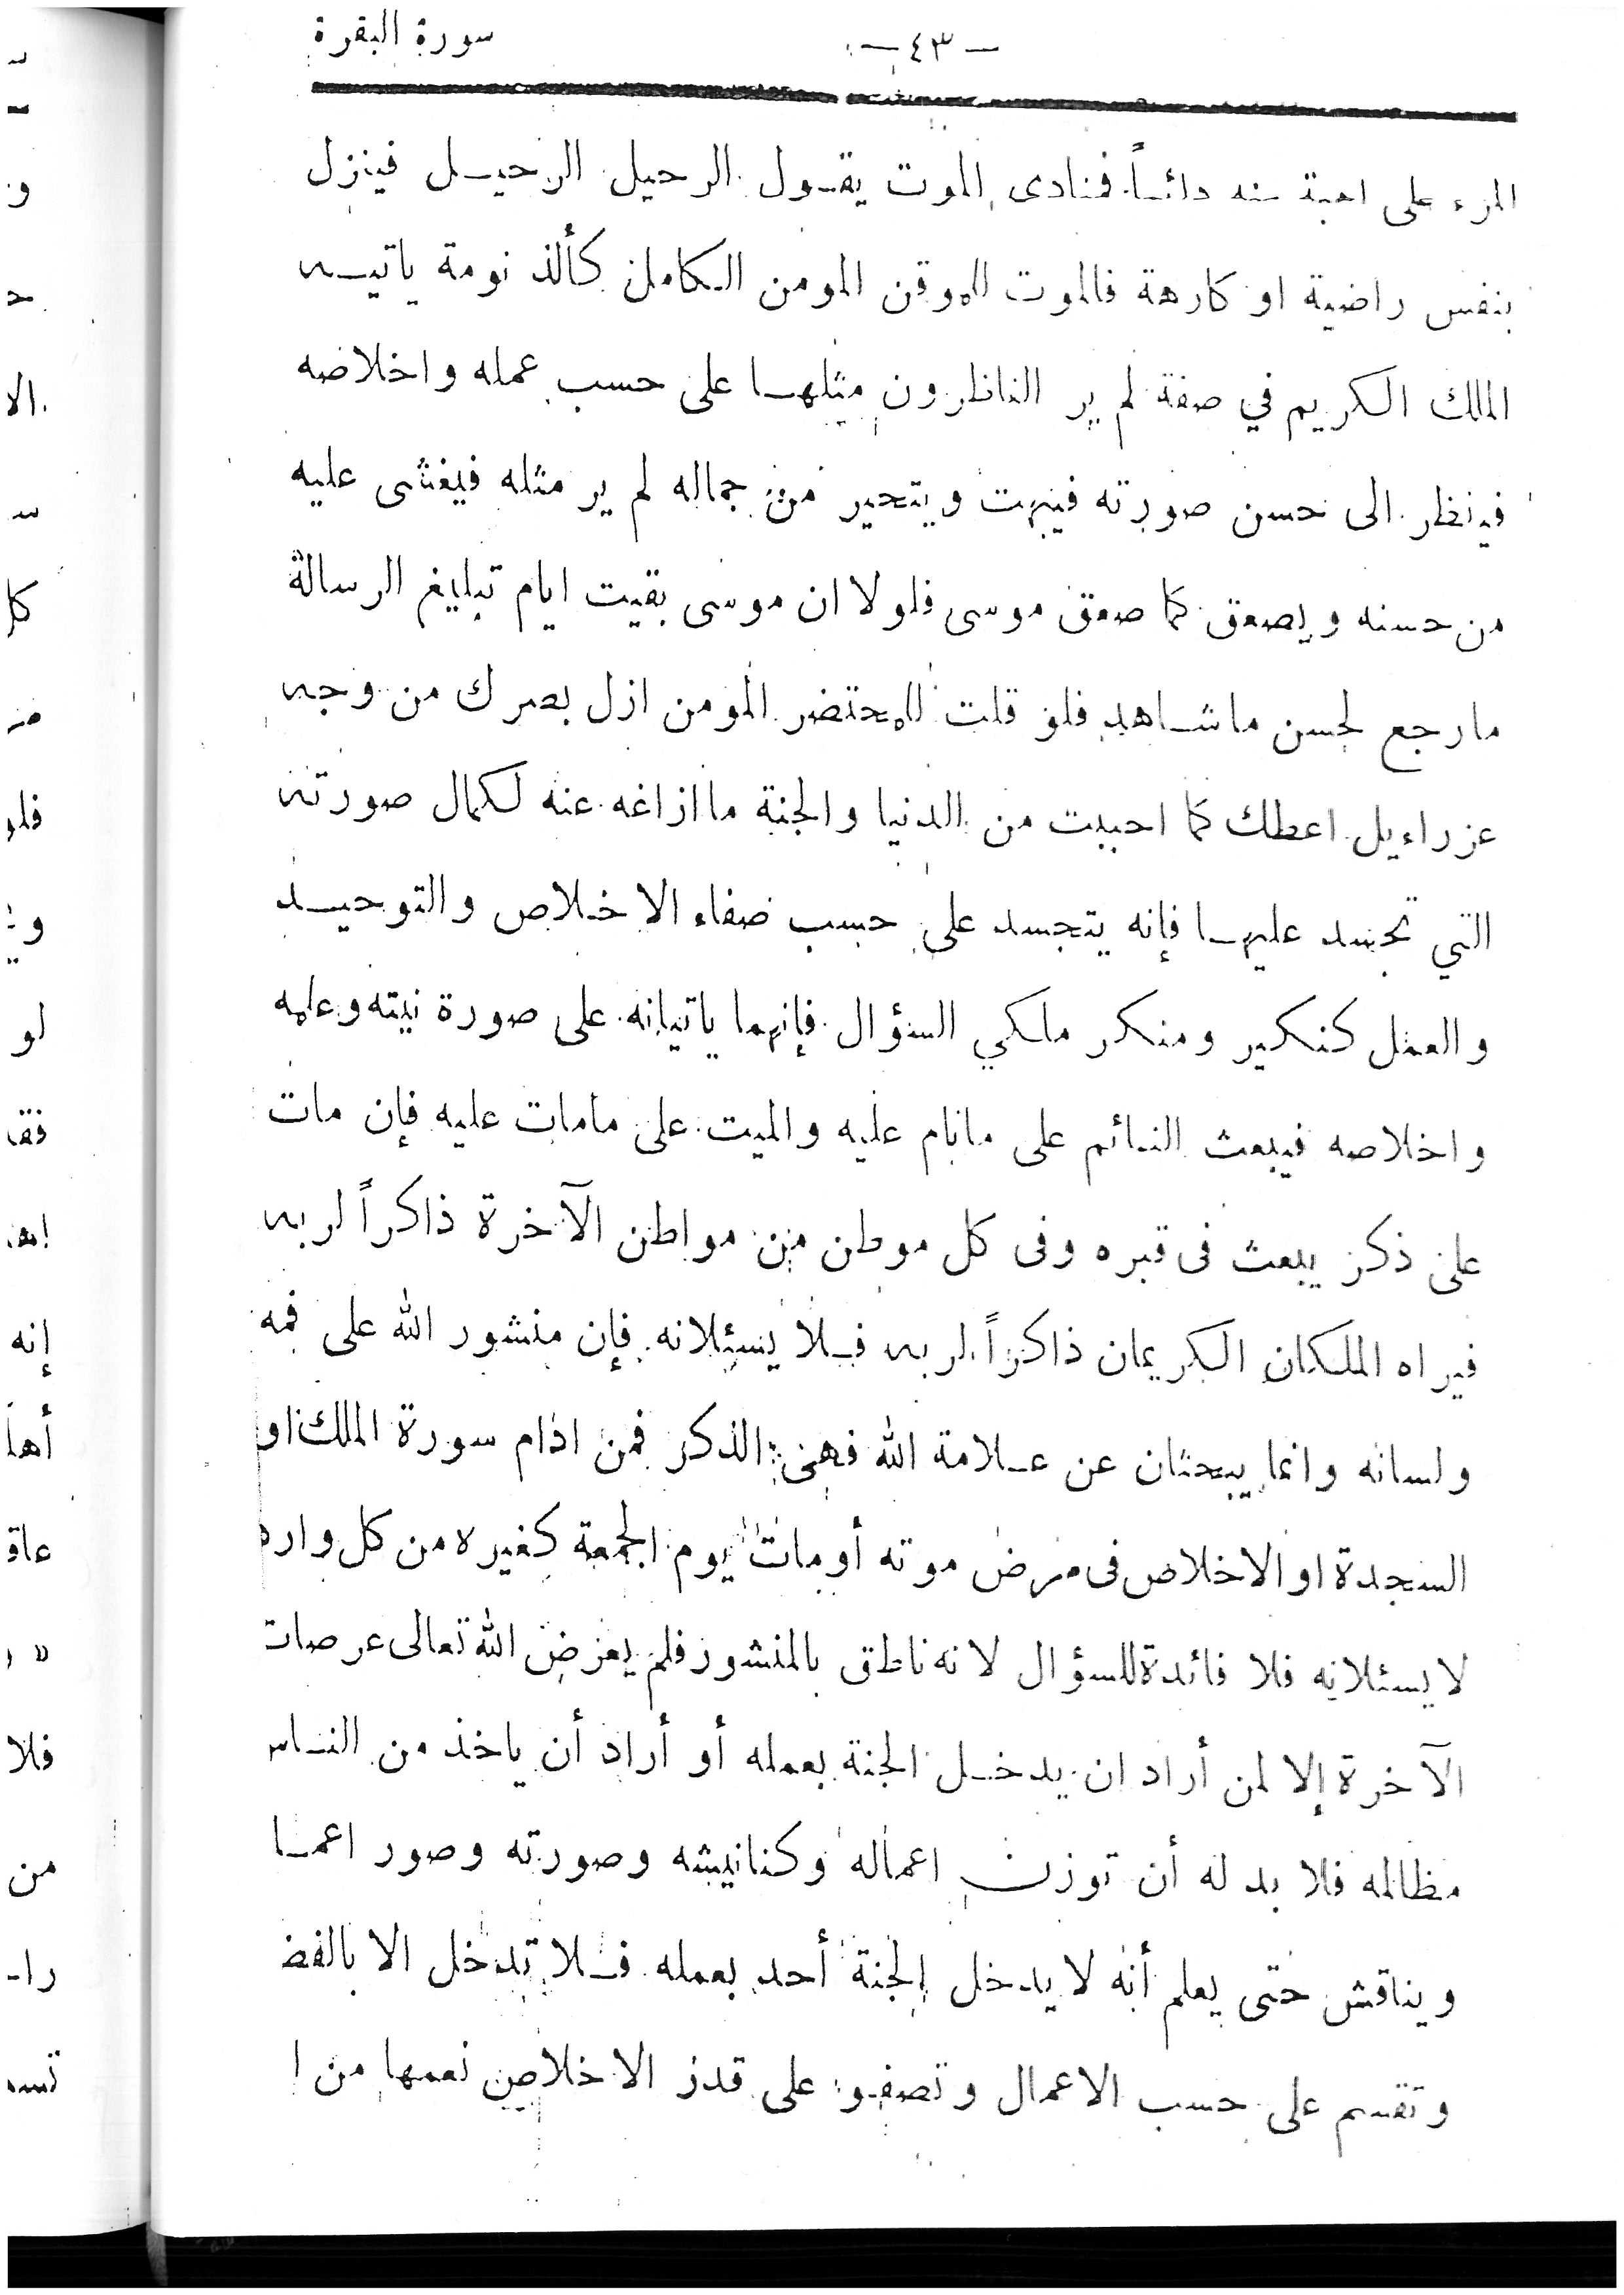 سورة البقرة
— ٤٣ —
المرء على اهبة منه دائماً فنادى الموت يقول الرحيل الرحيل فينزل
بنفس راضية او كارهة فالموت للموقن المومن الكامل كألذ نومة ياتيه
الملك الكريم في صفة لم ير الناظرون مثلها على حسب عمله واخلاصه
فينظر الى حسن صورته فيبهت ويتحير من جماله لم ير مثله فيغشى عليه
من حسنه ويصعق كما صعق موسى فلولا ان موسى بقيت ايام تبليغ الرسالة
مارجع لحسن ماشاهد فلو قلت للمحتضر المومن ازل بصرك من وجه
عزراءيل اعطك كما احببت من الدنيا والجنة ما ازاغه عنه لكمال صورته
التي تجسد عليها فإنه يتجسد على حسب صفاء الاخلاص والتوحيد
والعمل كنكير ومنكر ملكي السؤال فإنهما ياتيانه على صورة نيته وعلمه
واخلاصه فيبعث النائم على مانام عليه والميت على مامات عليه فإن مات
على ذكر يبعث فى قبره وفى كل موطن من مواطن الآخرة ذاكراً لربه
فيراه الملكان الكريمان ذاكراً لربه فلا يسئلانه فإن منشور الله على فمه
ولسانه وانما يبحثان عن علامة الله فهى الذكر فمن ادام سورة الملك او
السجدة او الاخلاص فى مرض موته أومات يوم الجمعة كغيره من كل وارد
لايسئلانه فلا فائدة للسؤال لانه ناطق بالمنشور فلم يعرض الله تعالى عرصات
الآخرة إلا لمن أراد ان يدخل الجنة بعمله أو أراد أن ياخذ من الناس
مظالمه فلا بد له أن توزن اعماله وكنانيشه وصورته وصور اعما
ويناقش حتى يعلم أنه لايدخل الجنة أحد بعمله فلا تدخل الا بالفضـ
وتقسم على حسب الاعمال وتصفو على قدر الاخلاص نعمها من ا